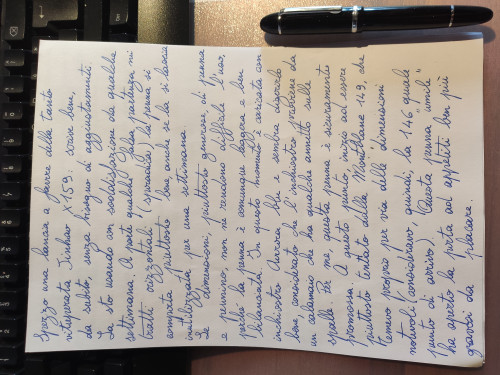 Spezzo una lancia a favore della tanto
vituperata Jinhao X159: scrive bene,
da subito, senza bisogno di aggiustamenti.
La sto usando con soddisfazione da qualche
settimana. A parte qualche falsa partenza nei
tratti orizzontali (sporadica) la penna si
comporta piuttosto bene anche se la si lascia
inutilizzata per una settimana.
Le dimensioni, piuttosto generose, di penna
e pennino, non ne rendono difficile l'uso,
perché la penna è comunque leggera e ben
bilanciata. In questo momento è caricata con
inchiostro Aurora blu e sembra digerirlo
bene, considerato che l'inchiostro proviene da
un calamaio che ha qualche annetto sulle
spalle. Per me, questa penna è sicuramente
promossa. A questo punto, inizio ad essere
piuttosto tentato dalla Montblanc 149, che
temevo proprio per via delle dimensioni
notevoli (consideravo, quindi, la 146 quale
punto di arrivo). Questa penna "umile"
ha aperto la porta ad appetiti ben più
gravosi da placare.